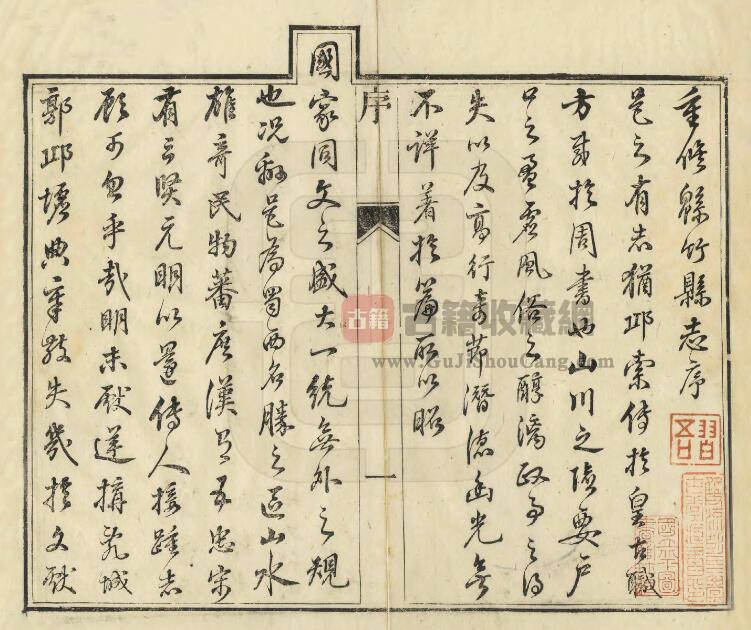 重修緜竹縣志序
邑之有志猶邱索傳於皇古職
方載於周書也山川之險要戶
口之盈虛風俗之醇漓政事之得
失以及高行奇節潛德幽光無
不詳著於篇所以昭
序
一
國家同文之盛大一統無外之規
也況緜邑為蜀西名勝之區山水
雄奇民物蕃庶漢有五忠宋
有三賢元明以還傳人接踵志
顧可忽乎哉明末獻逆搆兇城
郭邱墟典章散失幾於文獻
古籍
古籍收藏網
www.GuJiShouCang.com